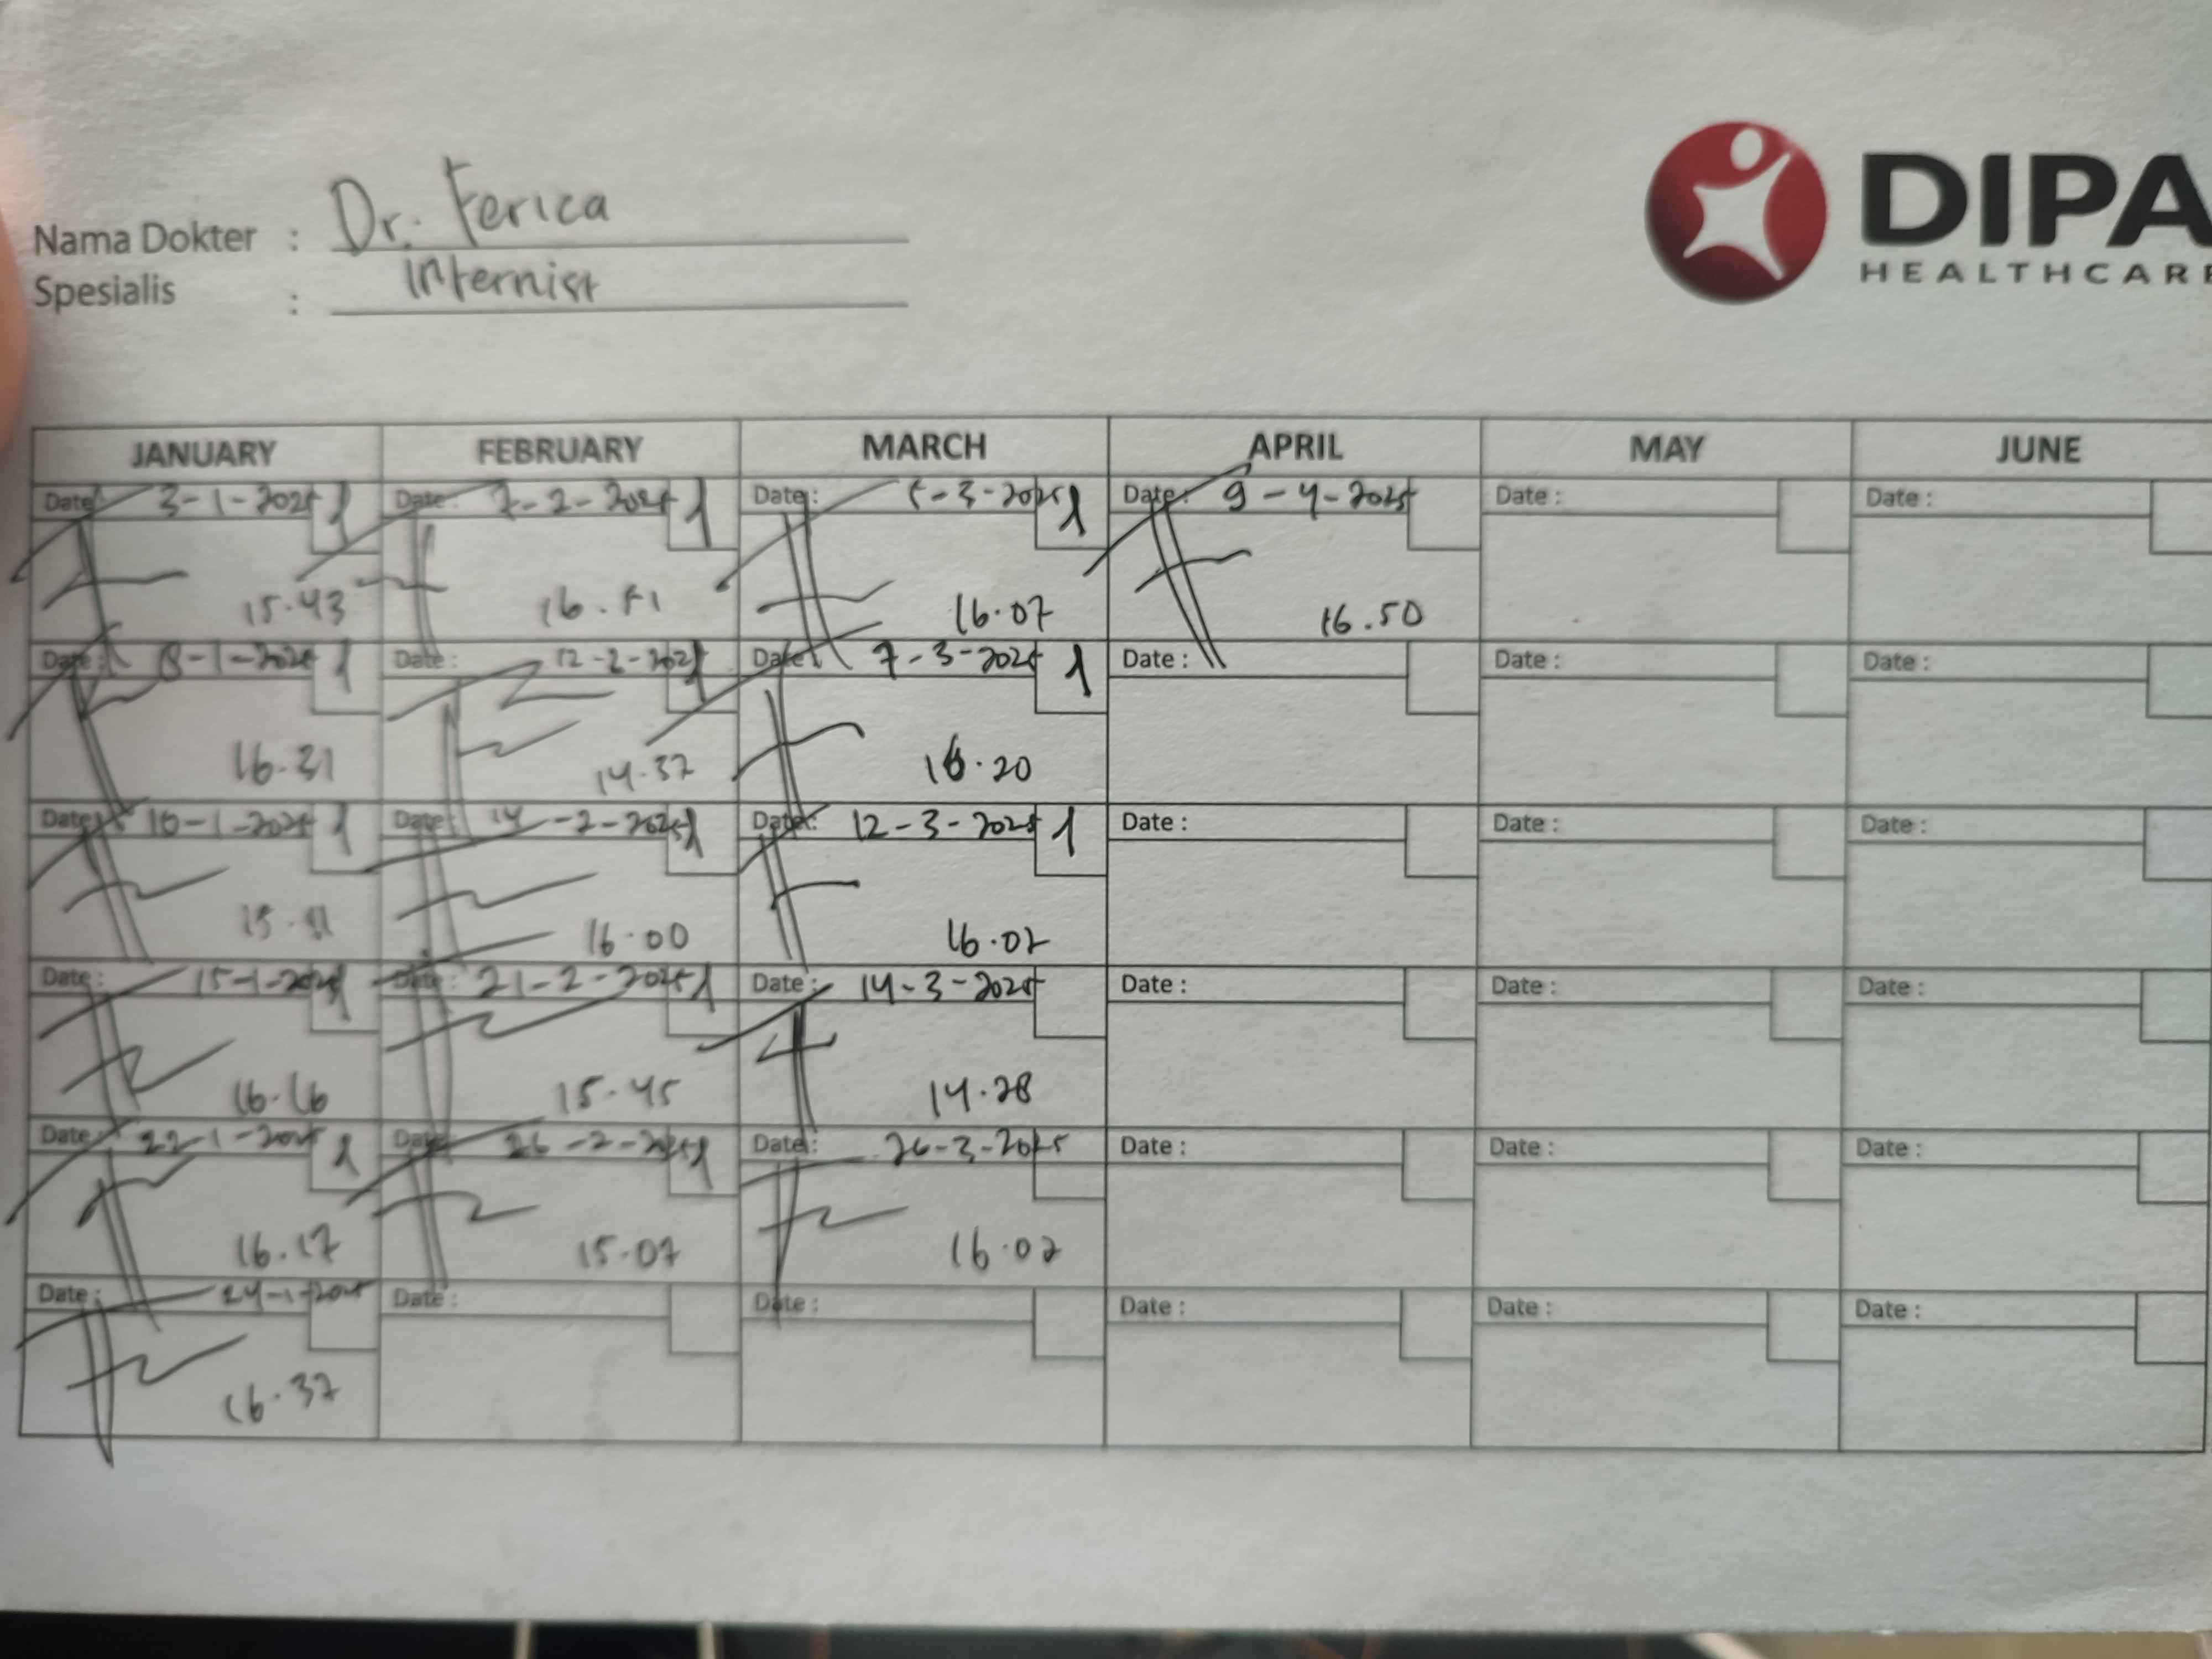 DIPA
HEALTHCARE
Nama Dokter : Dr. Ferica
Spesialis : Internist
JANUARY FEBRUARY MARCH APRIL MAY JUNE
Date : 3-1-2025 1 Date : 7-2-2025 1 Date : 5-3-2025 1 Date : 9-4-2025 Date : Date :
15.43 16.51 16.07 16.50
Date : 8-1-2025 1 Date : 12-2-2025 1 Date : 7-3-2025 1 Date : Date : Date :
16.31 14.37 16.20
Date : 10-1-2025 1 Date : 14-2-2025 1 Date : 12-3-2025 1 Date : Date : Date :
16.00 16.02
Date : 15-1-2025 1 Date : 21-2-2025 1 Date : 14-3-2025 Date : Date : Date :
16.16 15.45 14.28
Date : 22-1-2025 1 Date : 26-2-2025 1 Date : 26-3-2025 Date : Date : Date :
16.17 15.07 16.02
Date : 24-1-2025 Date : Date : Date : Date : Date :
16.37